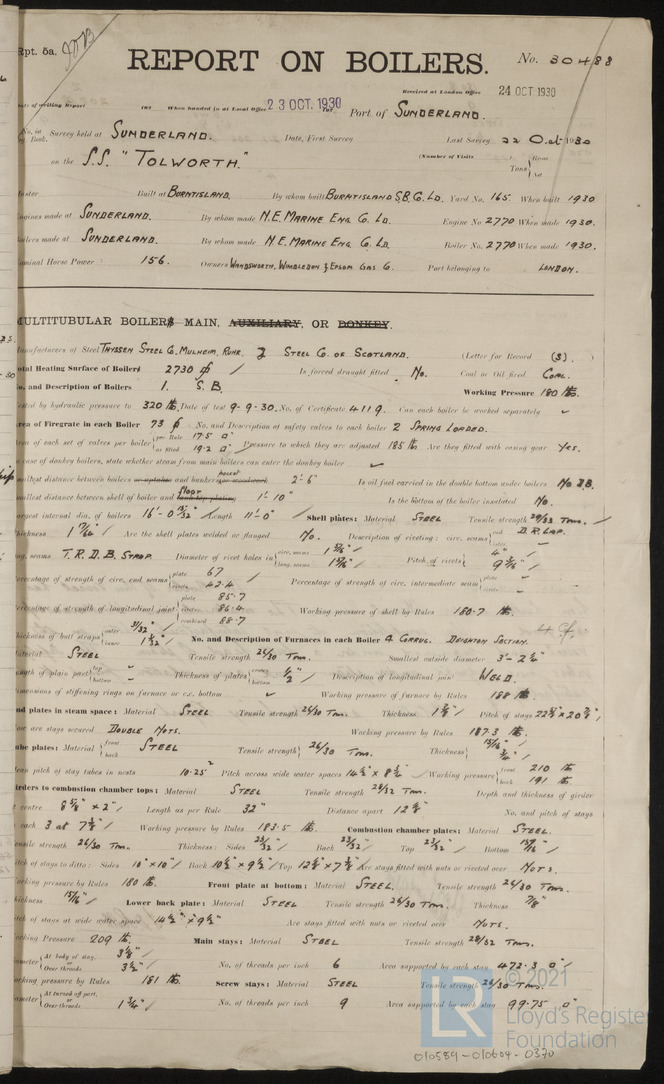 Rpt. 5a.
REPORT ON BOILERS.
No. 30488
Received at London Office 24 OCT 1930
of writing Report 193 When handed in at Local Office 23 OCT. 1930 Port of SUNDERLAND.
No. in Book. Survey held at SUNDERLAND. Date, First Survey Last Survey 22 Oct 1930
on the S.S. "TOLWORTH." (Number of Visits Tons Gross Net
Built at BURNTISLAND. By whom built BURNTISLAND S.B. Co. LD. Yard No. 165. When built 1930
Engines made at SUNDERLAND. By whom made N.E. MARINE ENG. Co. LD. Engine No. 2770 When made 1930.
Boilers made at SUNDERLAND. By whom made N.E. MARINE ENG. Co. LD. Boiler No. 2770 When made 1930.
Nominal Horse Power 156. Owners WANDSWORTH, WIMBLEDON & EPSOM GAS Co. Port belonging to LONDON.
MULTITUBULAR BOILERS MAIN, AUXILIARY, OR DONKEY.
Manufacturers of Steel THYSSEN STEEL Co. MULHEIM, RUHR. & STEEL Co. OF SCOTLAND. (Letter for Record (S).
Total Heating Surface of Boilers 2730 Is forced draught fitted No. Coal or Oil fired COAL.
No. and Description of Boilers 1. S.B. Working Pressure 180 lbs.
Tested by hydraulic pressure to 320 lbs. Date of test 9-9-30. No. of Certificate 4119. Can each boiler be worked separately
Area of Firegrate in each Boiler 73 No. and Description of safety valves to each boiler 2 SPRING LOADED.
Area of each set of valves per boiler per Rule 17.5 as fitted 19.2 Pressure to which they are adjusted 185 lbs. Are they fitted with easing gear Yes.
In case of donkey boilers, state whether steam from main boilers can enter the donkey boiler
Smallest distance between boilers or uptakes and bunkers pocket or woodwork 2'-6" Is oil fuel carried in the double bottom under boilers No D.B.
Smallest distance between shell of boiler and floor tank top plating 1'-10" Is the bottom of the boiler insulated No.
Largest internal dia. of boilers 16'-0 13/32" Length 11'-0" Shell plates: Material STEEL Tensile strength 29/33 Tons.
Thickness 1 17/64" Are the shell plates welded or flanged No. Description of riveting: circ. seams end D.R. LAP.
long. seams T.R.D.B. STRAP. Diameter of rivet holes in circ. seams 1 5/16" long. seams 1 5/16" Pitch of rivets 4" 9 3/16"
Percentage of strength of circ. end seams plate 67 rivets 42.4 Percentage of strength of circ. intermediate seam plate rivets
Percentage of strength of longitudinal joint plate 85.7 rivets 86.4 combined 88.7 Working pressure of shell by Rules 180.7 lbs.
Thickness of butt straps outer 31/32" inner 1 3/32" No. and Description of Furnaces in each Boiler 4 CORRUG. DEIGHTON SECTION. 4 Cf.
Material STEEL Tensile strength 26/30 Tons. Smallest outside diameter 3'-2 1/2"
Length of plain part top bottom Thickness of plates crown bottom 1/2" Description of longitudinal joint WELD.
Dimensions of stiffening rings on furnace or c.c. bottom Working pressure of furnace by Rules 188 lbs.
End plates in steam space: Material STEEL Tensile strength 26/30 Tons. Thickness 1 3/8" Pitch of stays 22 3/4" x 20 7/8"
How are stays secured DOUBLE NUTS. Working pressure by Rules 187.3 lbs.
Tube plates: Material front back STEEL Tensile strength 26/30 Tons. Thickness 15/16" 3/4"
Mean pitch of stay tubes in nests 10.25" Pitch across wide water spaces 14 1/2" x 8 3/4" Working pressure front 210 lbs back 191 lbs
Girders to combustion chamber tops: Material STEEL Tensile strength 28/32 Tons. Depth and thickness of girder
at centre 8 5/8" x 2" Length as per Rule 32" Distance apart 12 5/8" No. and pitch of stays
in each 3 at 7 3/8" Working pressure by Rules 183.5 lbs. Combustion chamber plates: Material STEEL.
Tensile strength 26/30 Tons. Thickness: Sides 23/32" Back 23/32" Top 23/32" Bottom 15/16"
Pitch of stays to ditto: Sides 10" x 10" Back 10 1/2" x 9 1/2" Top 12 5/8" x 7 3/8" Are stays fitted with nuts or riveted over NUTS.
Working pressure by Rules 180 lbs. Front plate at bottom: Material STEEL. Tensile strength 26/30 Tons.
Thickness 15/16" Lower back plate: Material STEEL Tensile strength 26/30 Tons. Thickness 7/8"
Pitch of stays at wide water space 14 1/2" x 9 1/2" Are stays fitted with nuts or riveted over NUTS.
Working Pressure 209 lbs. Main stays: Material STEEL Tensile strength 28/32 Tons.
Diameter At body of stay, 3 1/8" or Over threads 3 1/2" No. of threads per inch 6 Area supported by each stay 472.3
Working pressure by Rules 181 lbs. Screw stays: Material STEEL Tensile strength 26/30 Tons.
Diameter At turned off part, or Over threads 1 3/4" No. of threads per inch 9 Area supported by each stay 99.75
© 2021
LR Lloyd's Register
Foundation
010589-010604-0370